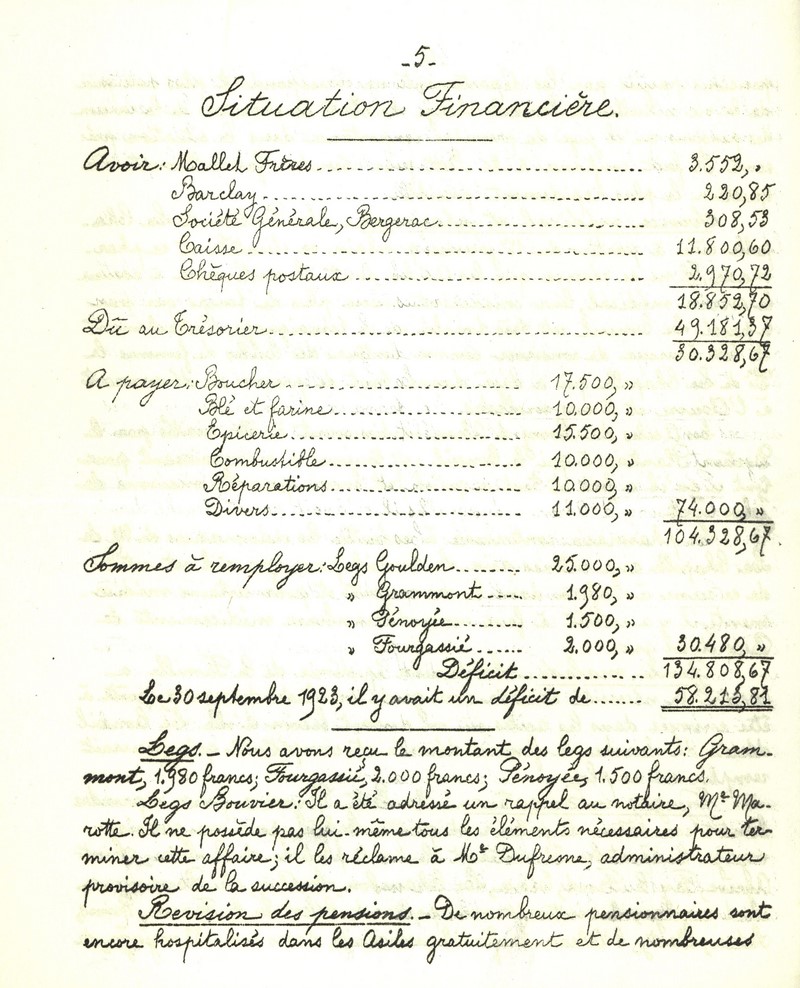 -5-
Situation Financière.
Avoir: Mallet Frères 3.552, "
Barclay 220,85
Société Générale, Bergerac 308,53
Caisse 11.800,60
Chèques postaux 2.970,72
18.852,70
Dû au Trésorier 49.181,37
30.328,67
A payer: Boucher 17.500, "
Blé et farine 10.000, "
Epicerie 15.500, "
Combustible 10.000, "
Réparations 10.000, "
Divers 11.000, " 74.000, "
104.328,67.
Sommes à remployer: Legs Goulden 25.000, "
" Grammont 1.980, "
" Pénoyée 1.500, "
" Fourgassié 2.000, " 30.480, "
Déficit 134.808,67
Le 30 septembre 1923, il y avait un déficit de 58.213,81
Legs. - Nous avons reçu le montant des legs suivants: Gram-
mont, 1.980 francs; Fourgassié, 2.000 francs; Pénoyée, 1.500 francs.
Legs Bouvier: Il a été adressé un rappel au notaire, Me Ma-
rotte. Il ne possède pas lui-même tous les éléments nécessaires pour ter-
miner cette affaire; il les réclame à Mr Dufresne, administrateur
provisoire de la succession.
Revision des pensions. - De nombreux pensionnaires sont
encore hospitalisés dans les Asiles gratuitement et de nombreuses